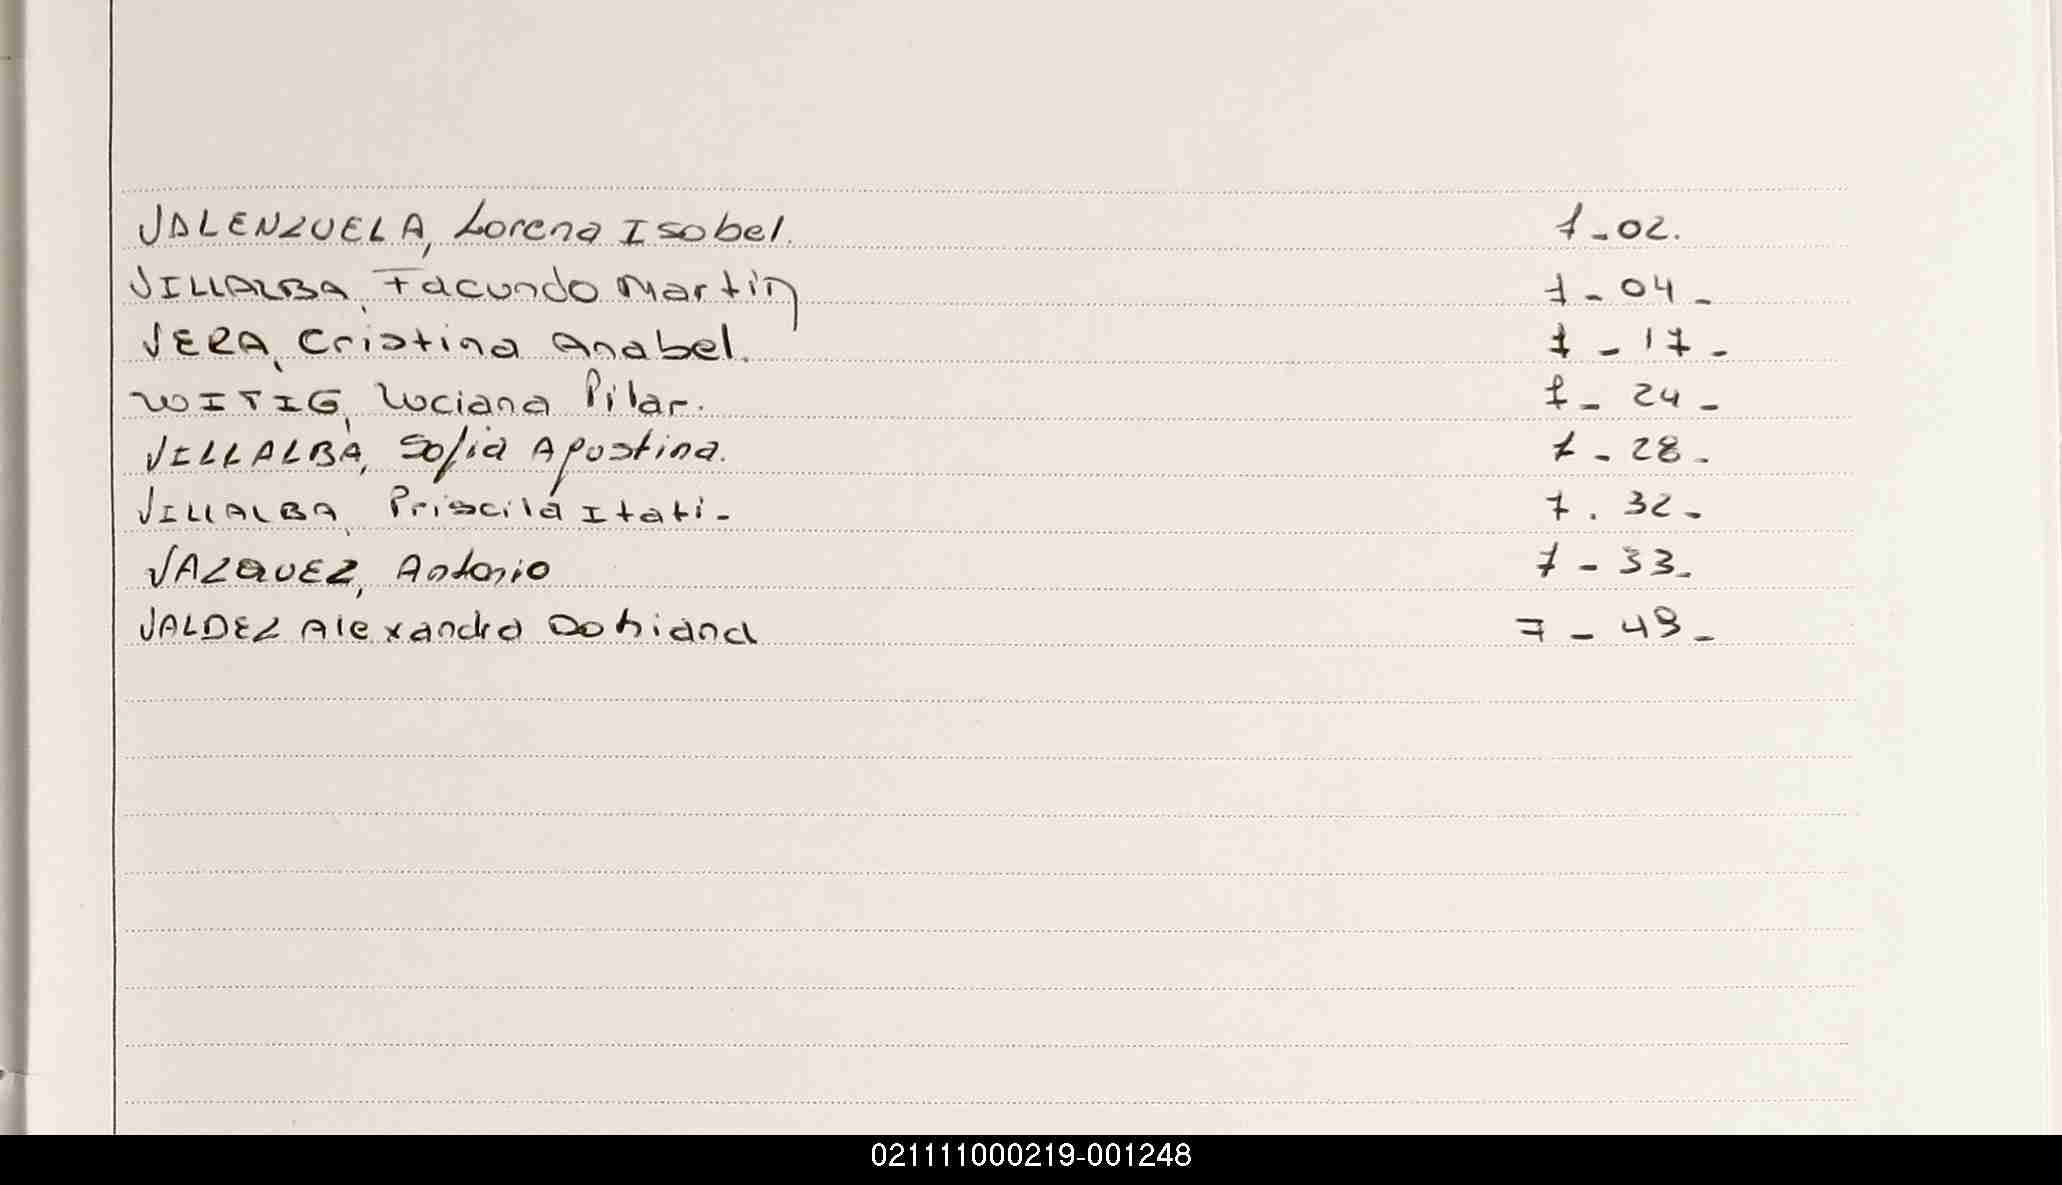 VALENZUELA, Lorena Isabel. 7-02.
VILLALBA, Facundo Martin 7-04-
VERA, Cristina Anabel. 7-17-
WITIG, Luciana Pilar. 7-24-
VILLALBA, Sofia Agustina. 7-28-
VILLALBA, Priscila Itati- 7.32-
VAZQUEZ, Antonio 7-33-
VALDEZ Alexandra 7-49-
021111000219-001248